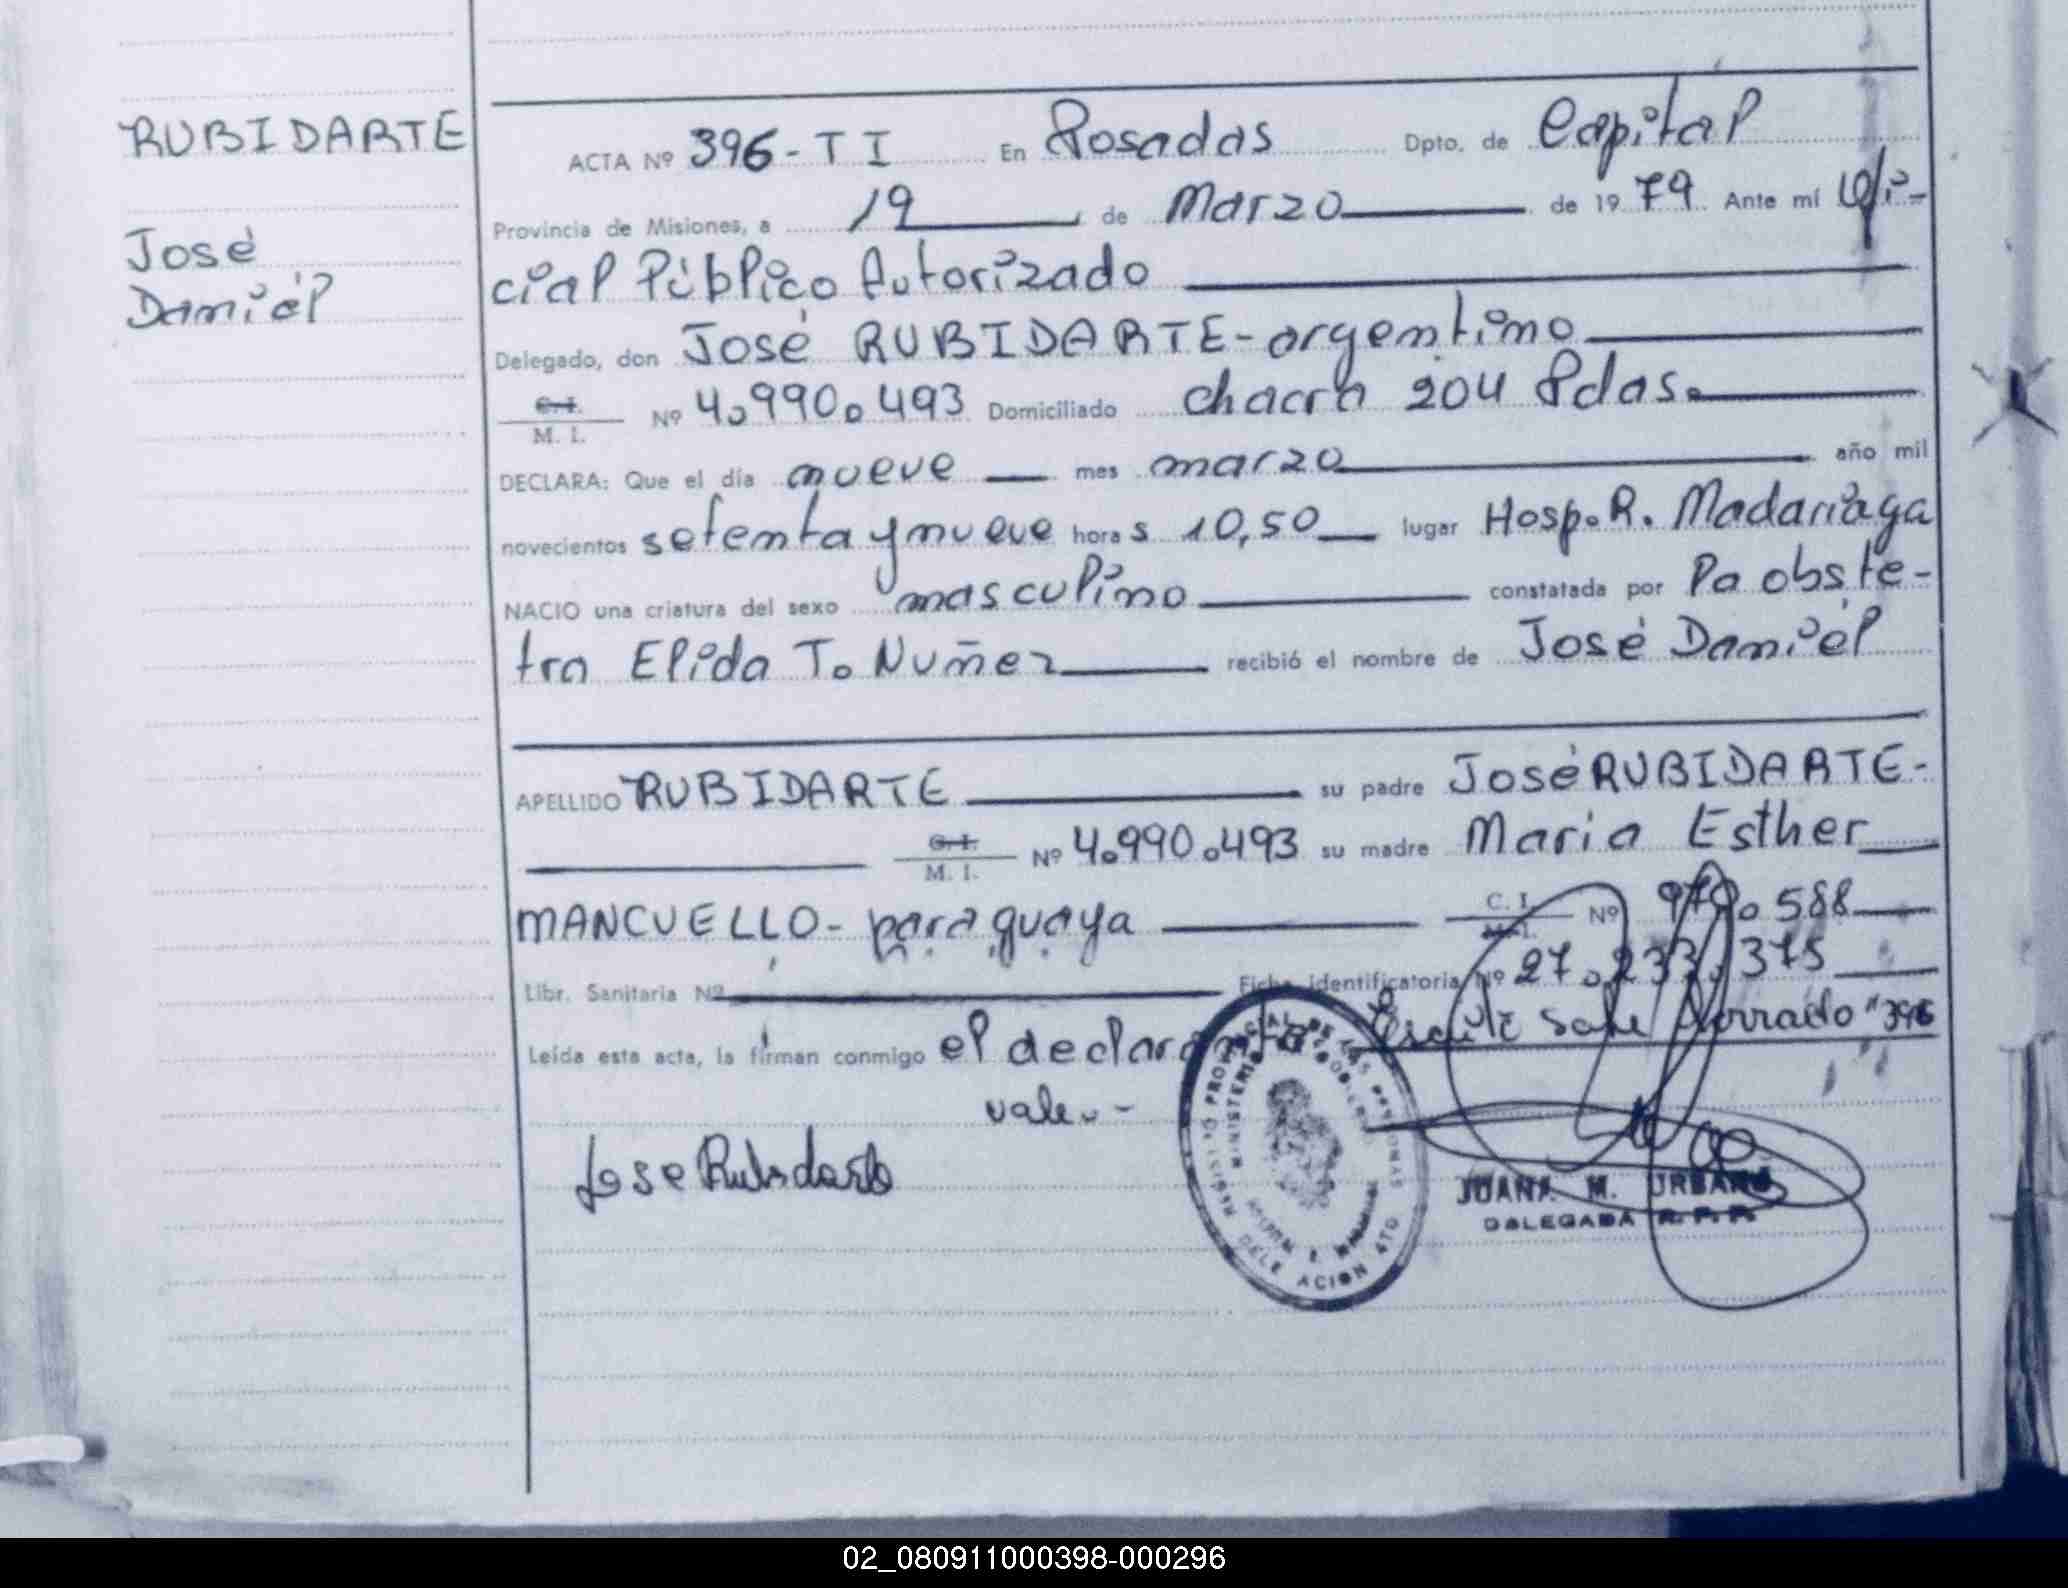 RUBIDARTE
José
Daniél
ACTA Nº 396-TI En Posadas Dpto. de Capital
Provincia de Misiones, a 19 de Marzo de 1979. Ante mí Ofi-
cial Público Autorizado
Delegado, don José RUBIDARTE-argentino
C. I. M. I. Nº 4.990.493 Domiciliado chacra 204 Pdas.
DECLARA: Que el día nueve mes marzo año mil
novecientos setenta y nueve horas 10,50 lugar Hosp.R. Madariaga
NACIO una criatura del sexo masculino constatada por la obste-
tra Elida T. Nuñez recibió el nombre de José Daniél
APELLIDO RUBIDARTE su padre José RUBIDARTE-
C. I. M. I. Nº 4.990.493 su madre Maria Esther
MANCUELLO- paraguaya C. I. M. I. Nº 588
Libr. Sanitaria Nº Ficha identificatoria Nº 27.233.375
Leída esta acta, la firman conmigo el declarante borrado "396
vale.-
Jose Rubidarte
REGISTRO PROVINCIAL DE LAS PERSONAS
MINISTERIO DE GOBIERNO
DELEGACION 4TO
JUANA M. URBANO
DELEGADA R. P. P.
02_080911000398-000296